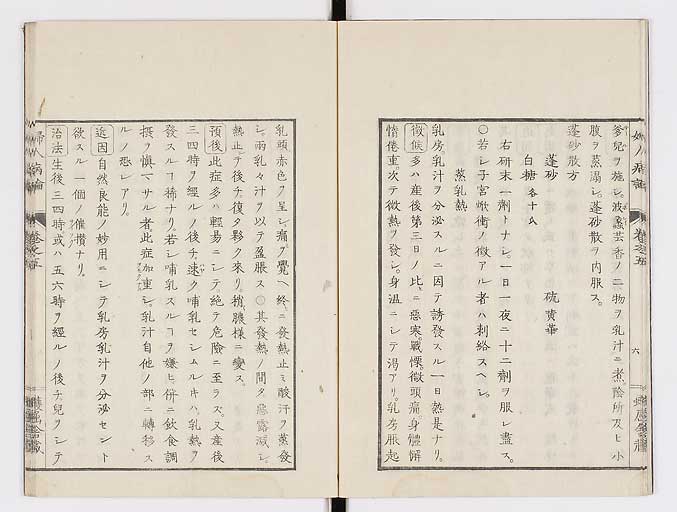 婦人病論 卷之五
六
爹兒ヲ施シ波蠡芸香ノ二物ヲ乳汁ニ煮、陰所及ヒ小
腹ヲ蒸溻シ、蓬砂散ヲ内服ス。
蓬砂散方
蓬砂 硫黄華
白糖各十氏
右研末一劑トナシ、一日一夜ニ十二劑ヲ服シ盡ス。
〇若シ子宮焮衝ノ徴アル者ハ刺絡スヘシ。
蒸乳熱
乳房乳汁ヲ分泌スルニ因テ誘發スル一日熱是ナリ。
徴候多ハ産後第三日ノ比、ニ惡寒。戰慄。微頭痛身體懈
惰倦重次テ微熱ヲ發シ。身温ニシテ湯アリ。乳房脹起
乳頭赤色ヲ呈シ。痛ヲ覺ヘ、終ニ發熱止ミ酸汗ヲ蒸發
シ。兩乳々汁ヲ以テ盈脹ス〇其發熱ノ間タ惡露減シ。
熱止テ後チ復タ夥ク來リ。稍膿様ニ變ス。
預後此症多ハ輕易ニシテ絶テ危險ニ至ラス。又産後
三四時ヲ經ルノ後チ速ク哺乳セシムルキハ乳熱ヲ
發スルヿ稀ナリ。若シ哺乳スルヿヲ嫌ヒ併ニ飲食調
摂ヲ愼マサル者此症加重シ。乳汁自他ノ部ニ轉移ス
ルノ恐レアリ。
近因自然良能ノ妙用ニシテ乳房乳汁ヲ分泌セント
欲スル一個ノ催攢ナリ。
治法生後三四時或ハ五六時ヲ經ルノ後チ兒ヲシテ
婦人病論 卷之五